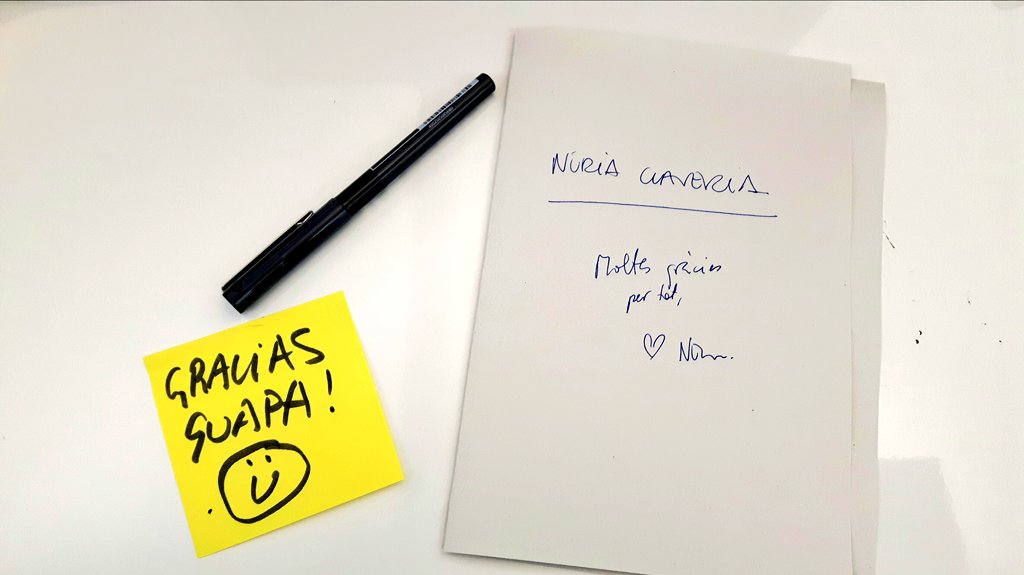 GRACIAS
GUAPA!
NÚRIA CLAVERIA
Moltes gràcies
per tot,